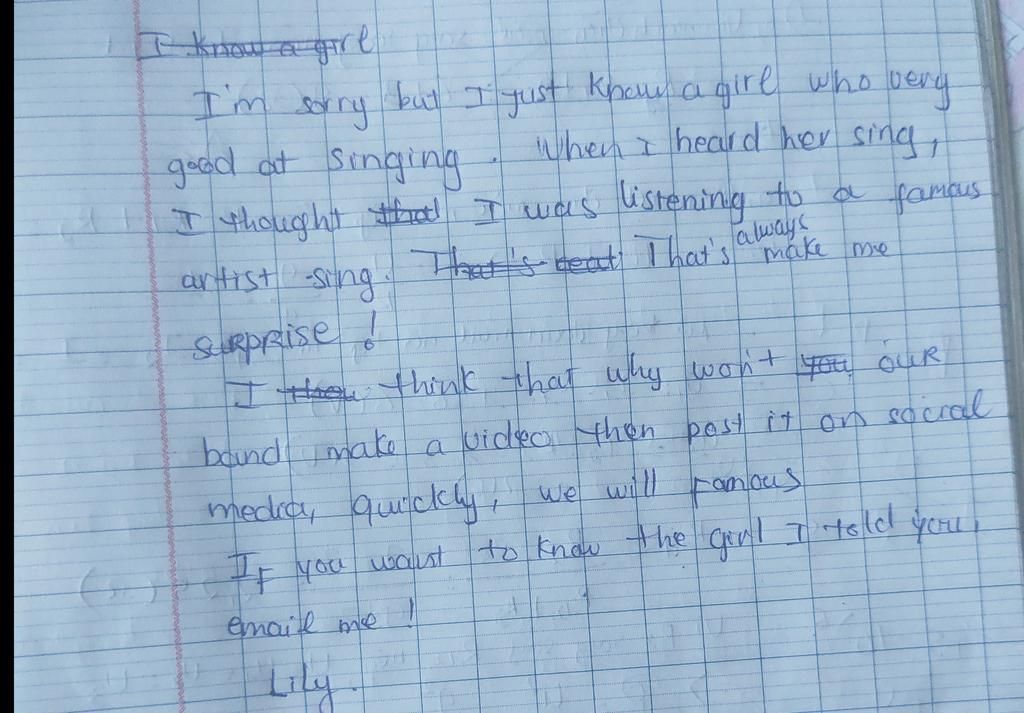 I know a girl
I'm sorry but I just know a girl who very
good at singing. When I heard her sing,
I thought that I was listening to a famous
always
artist sing. That's That's make me
surprise!
I think that why won't you our
band make a video then post it on social
media, quickly, we will famous
If you want to know the girl I told you,
email me!
Lily.